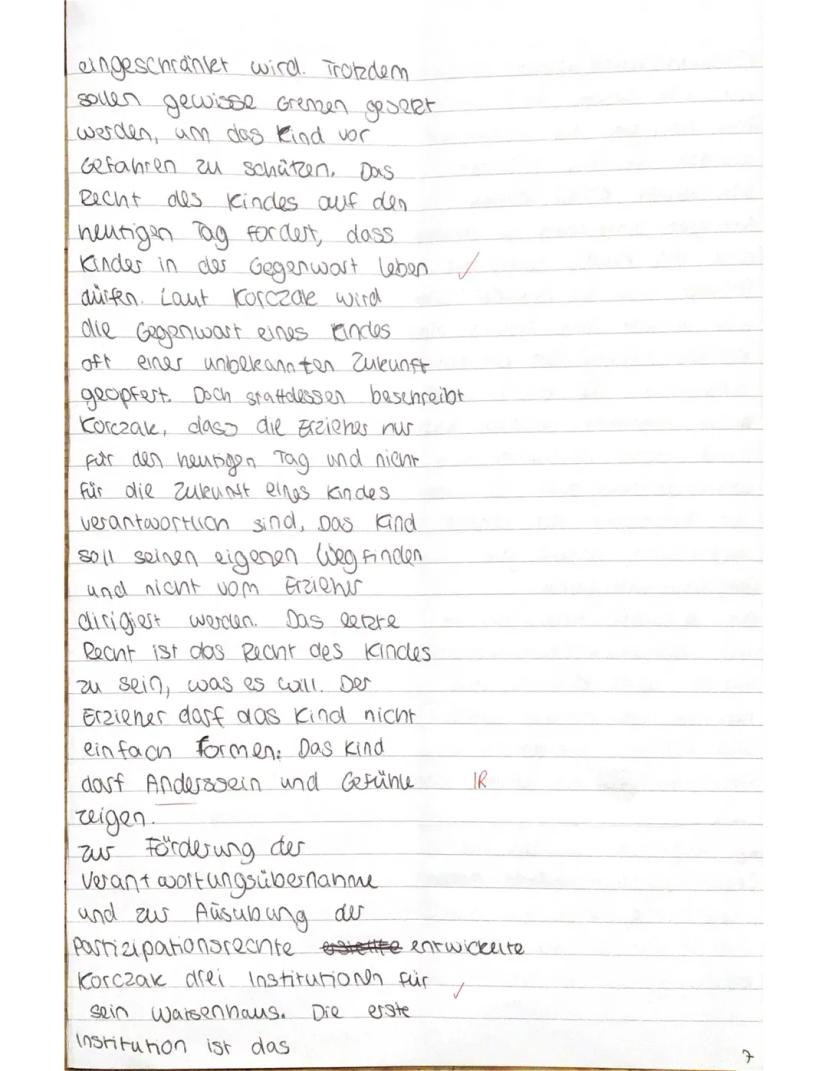 eingeschränkt wird. Trotzdem
sollen gewisse Grenzen gesetzt
werden, um das Kind vor
Gefahren zu schützen. Das
Recht des Kindes auf den
heutigen Tag fordert, dass
Kinder in der Gegenwart leben ✓
dürfen. Laut Korczak wird
die Gegenwart eines Kindes
oft einer unbekannten Zukunft
geopfert. Doch stattdessen beschreibt
Korczak, dass die Erzieher nur
für den heutigen Tag und nicht
für die Zukunft eines Kindes
verantwortlich sind, Das Kind
soll seinen eigenen Weg finden
und nicht vom Erzieher
dirigiert werden. Das letzte
Recht ist das Recht des Kindes
zu sein, was es will. Der
Erzieher darf das Kind nicht
einfach formen: Das Kind
darf Anderssein und Gefühle IR
zeigen.
zur Förderung der
Verantwortungsübernahme
und zur Ausübung der
Partizipationsrechte entwickelte
Korczak drei Institutionen für
sein Waisenhaus. Die erste ✓
Institution ist das
7